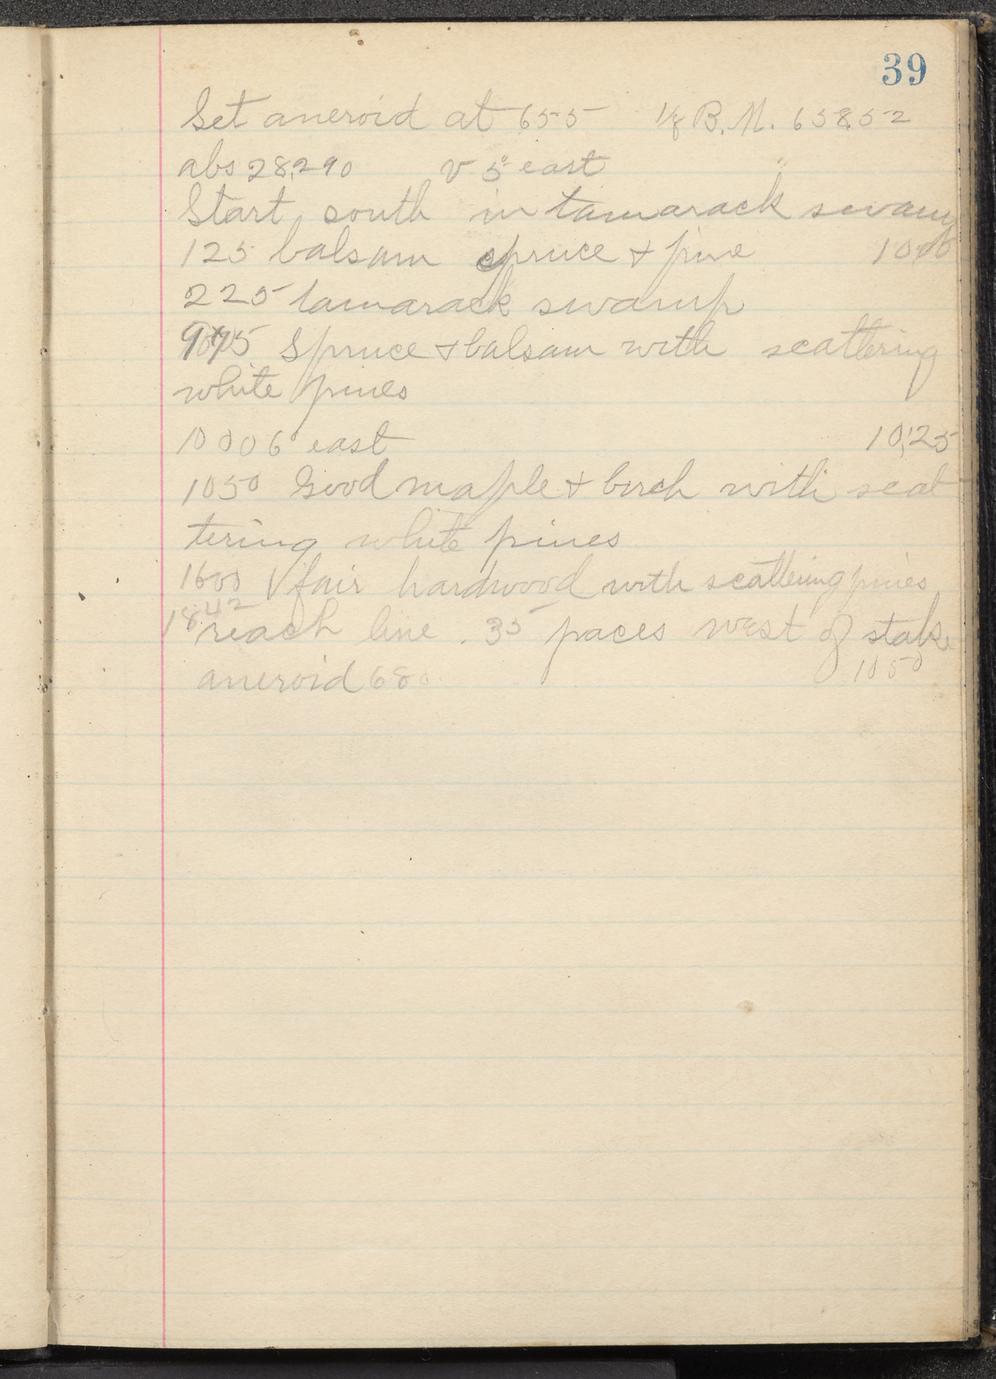 39
Set aneroid at 655 1/8 B.M. 658.52
abs 28,290 V 5° east "
Start south in tamarack swamp
125 balsam spruce & pine
225 tamarack swamp
975 Spruce & balsam with scattering
white pines
1000 6° east 10,25
1050 Good maple & birch with scat
tering white pines
1600 fair hardwood with scattering pines
1842
reach line. 35 paces west of stake
aneroid 680 1050